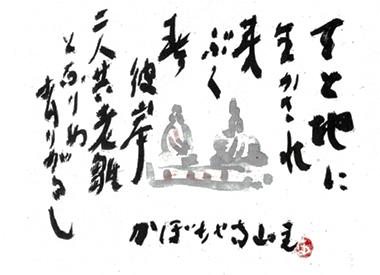 天と地に
生かされ
ぶく
彼岸
二人共老雛
となり
ありがたし
かぼちゃ寺山主